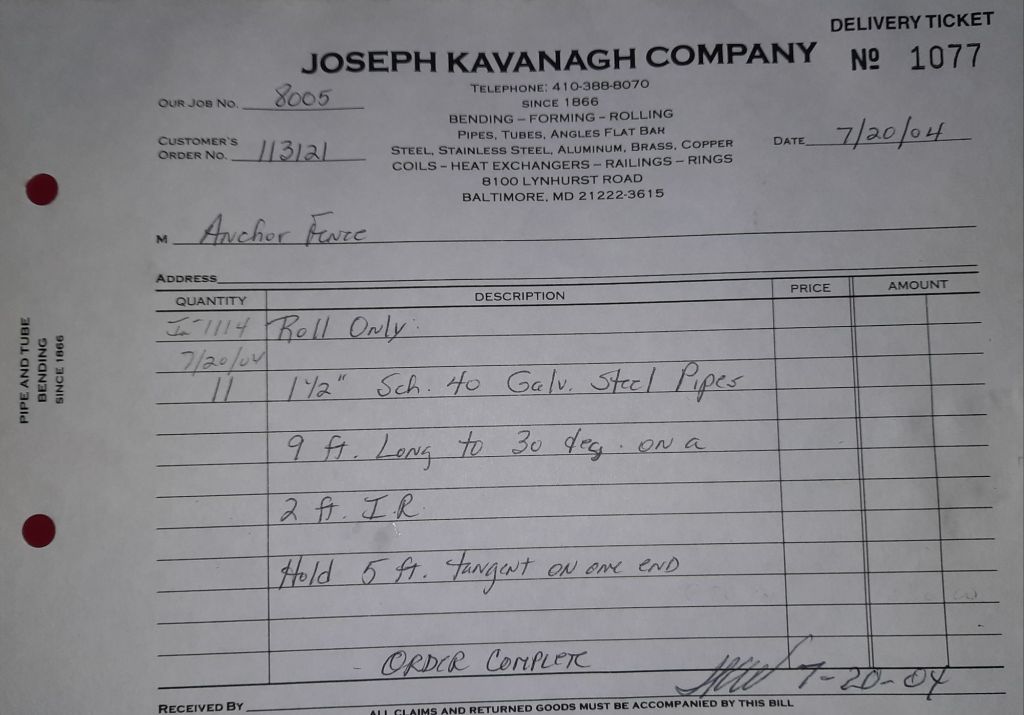 DELIVERY TICKET
JOSEPH KAVANAGH COMPANY
Nº 1077
TELEPHONE: 410-388-8070
SINCE 1866
BENDING – FORMING – ROLLING
PIPES, TUBES, ANGLES FLAT BAR
STEEL, STAINLESS STEEL, ALUMINUM, BRASS, COPPER
COILS – HEAT EXCHANGERS – RAILINGS – RINGS
8100 LYNHURST ROAD
BALTIMORE, MD 21222-3615
OUR JOB NO. 8005
CUSTOMER'S
ORDER NO. 113121
DATE 7/20/04
M Anchor Fence
ADDRESS
QUANTITY DESCRIPTION PRICE AMOUNT
In-1114 Roll Only:
7/20/04
11 1 1/2" Sch. 40 Galv. Steel Pipes
9 ft. Long to 30 deg. on a
2 ft. I.R.
Hold 5 ft. tangent on one end
- ORDER COMPLETE
7-20-04
RECEIVED BY
ALL CLAIMS AND RETURNED GOODS MUST BE ACCOMPANIED BY THIS BILL
PIPE AND TUBE
BENDING
SINCE 1866